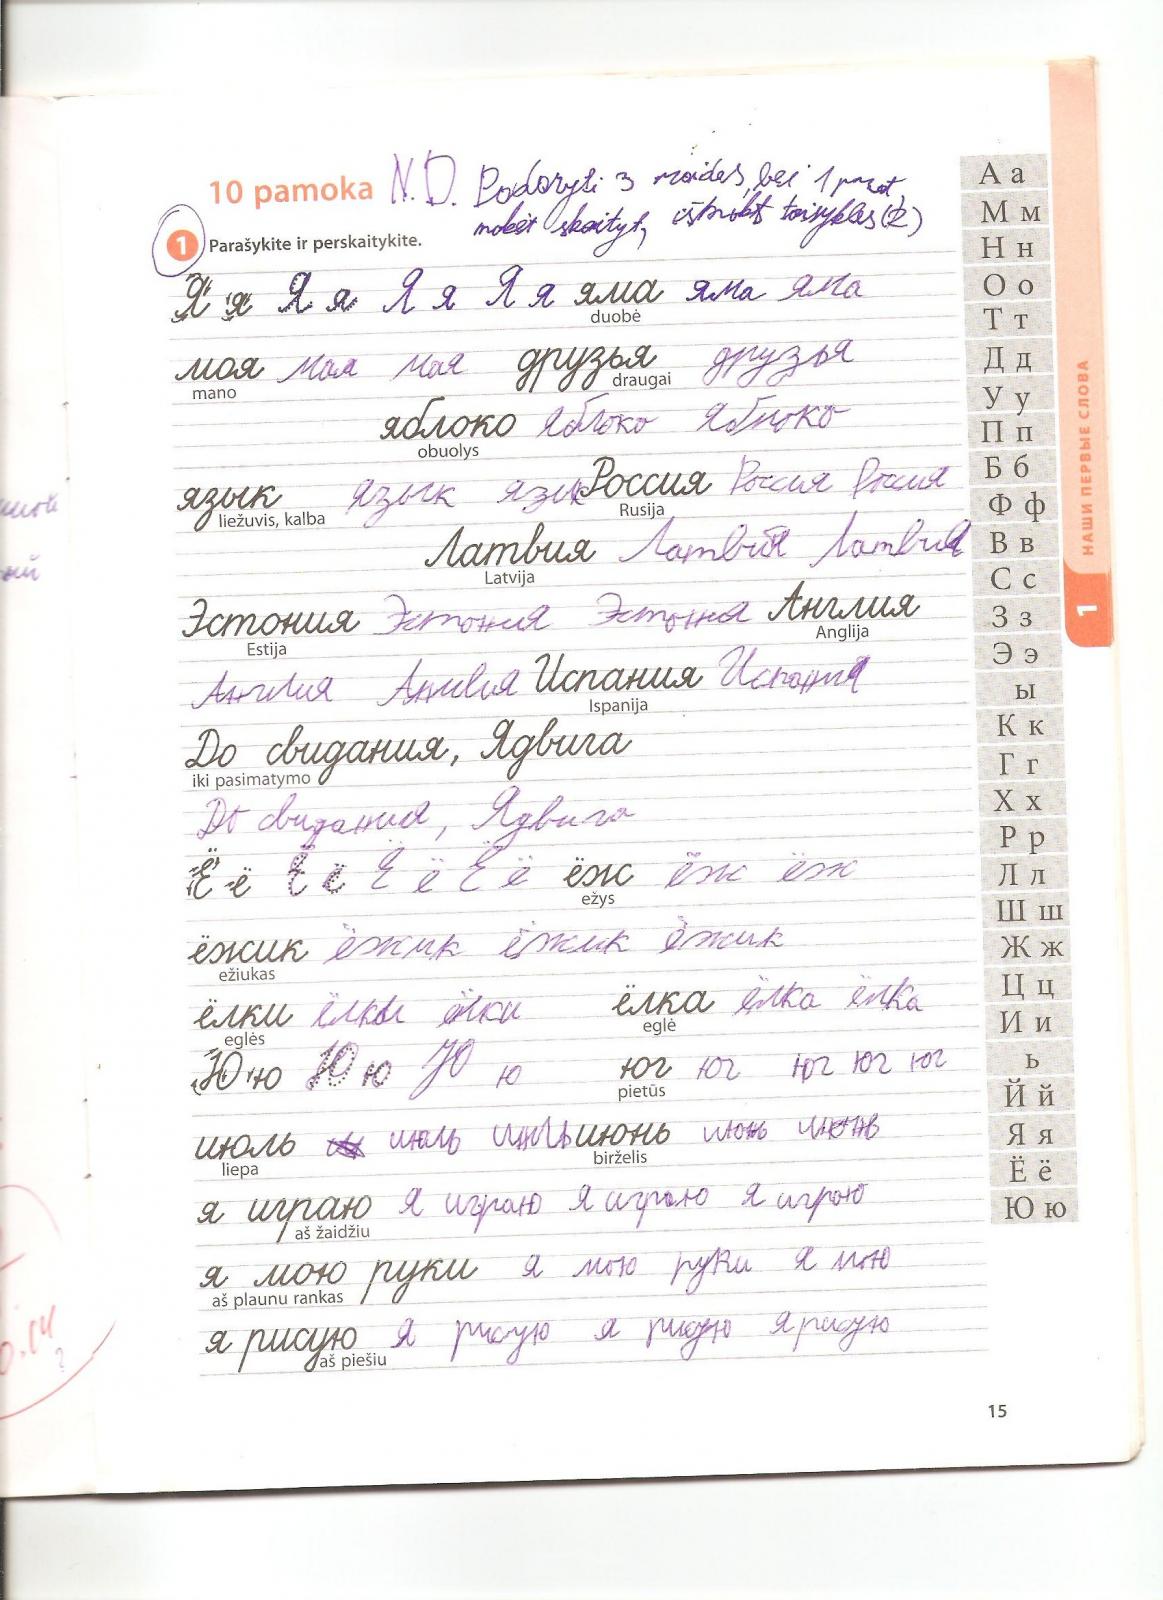 10 pamoka N.D. Padaryti 3 bei 1
skaityt, taisykles
1 Parašykite ir perskaitykite.
Я я Я я Я я Я я яма яма яма
duobė
моя моя моя друзья друзья
mano draugai
яблоко яблоко яблоко
obuolys
язык язык язык Россия Россия Россия
liežuvis, kalba Rusija
Латвия Латвия Латвия
Latvija
Эстония Эстония Эстония Англия
Estija Anglija
Англия Англия Испания Испания
Ispanija
До свидания, Ядвига
iki pasimatymo
До свидания, Ядвига
Ё ё Ё ё Ё ё Ё ё ёж ёж ёж
ežys
ёжик ёжик ёжик ёжик
ežiukas
ёлки ёлки ёлки ёлка ёлка ёлка
eglės eglė
Ю ю Ю ю Ю ю юг юг юг юг юг
pietūs
июль июль июль июнь июнь июнь
liepa birželis
я играю я играю я играю я играю
aš žaidžiu
я мою руки я мою руки я мою
aš plaunu rankas
я рисую я рисую я рисую я рисую
aš piešiu
15
А а
М м
Н н
О о
Т т
Д д
У у
П п
Б б
Ф ф
В в
С с
З з
Э э
ы
К к
Г г
Х х
Р р
Л л
Ш ш
Ж ж
Ц ц
И и
ь
Й й
Я я
Ё ё
Ю ю
НАШИ ПЕРВЫЕ СЛОВА
1